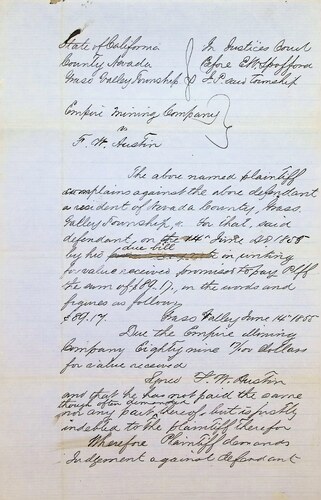 State of California
County Nevada
Grass Valley Township
In Justices Court
Before E W Spofford
J. P. said Township
Empire Mining Company
vs
F. W. Austin
The above named plaintiff
complains against the above defendant
a resident of Nevada County, Grass
Valley Township, For that, said
defendant on the 14th June AD 1855
by his due bill in writing
for value received promised to pay Plff
the sum of $89.17, in the words and
figures as follows
$89.17 Grass Valley June 14th 1855
Due the Empire Mining
Company Eighty nine 17/100 dollars
for value received
Signed F. W. Austin
and that he has not paid the same
though often demanded
nor any part thereof but is justly
indebted to the plaintiff therefor
Wherefore Plaintiff demands
Judgement against defendant